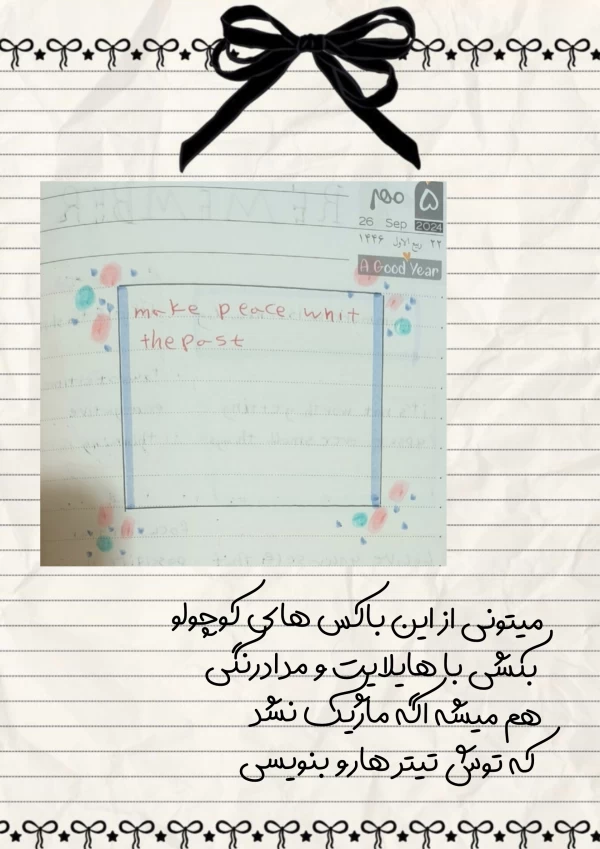 REMEMBER
۵ مهر
26 Sep 2024
۲۲ ربیع الاول ۱۴۴۶
A Good Year
make peace whit
the past
میتونی از این باکس های کوچولو
بکشی با هایلایت و مدادرنگی
هم میشه اگه ماژیک نشد
که توش تیتر هارو بنویسی